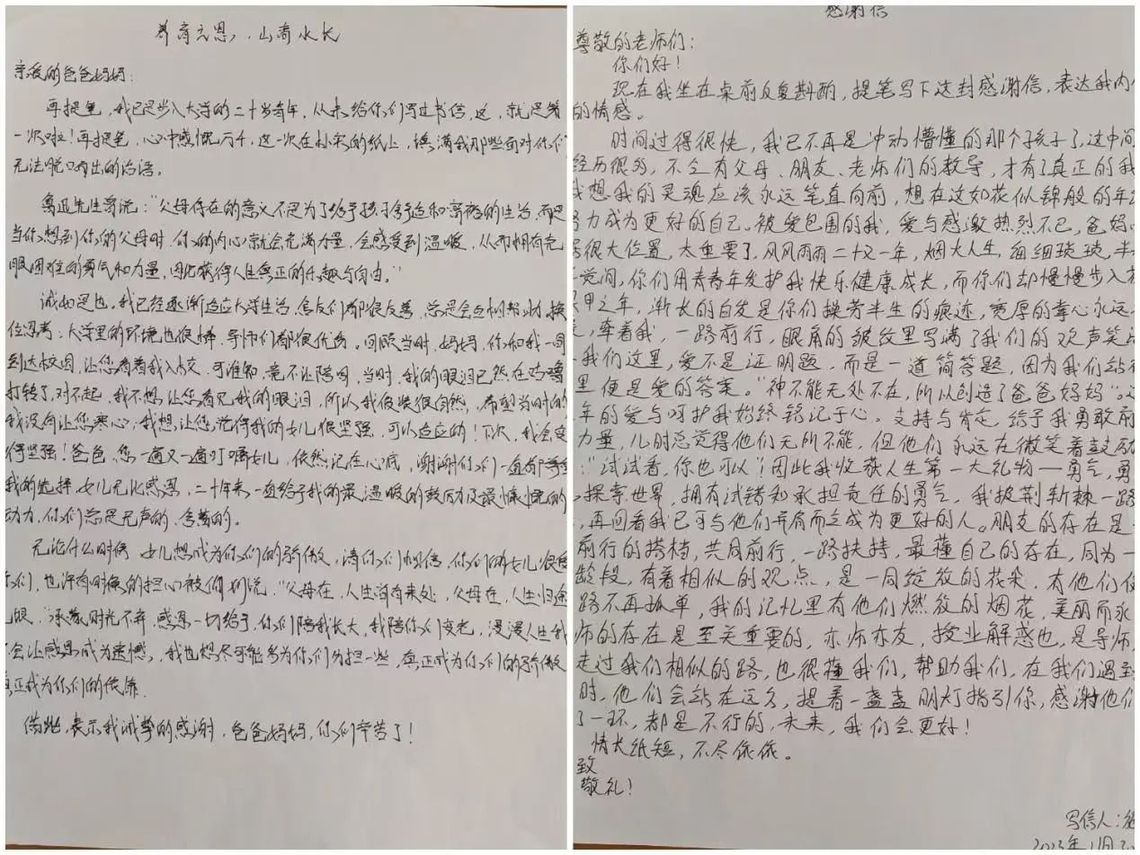 养育之恩，山高水长
亲爱的爸爸妈妈：
再提笔，我已是步入大学的二十岁青年，从未给你们写过书信，这，就是第
一次啦！再提笔，心中感慨万千，这一次在朴实的纸上，填满我那些面对你们
无法脱口而出的话语。
鲁迅先生曾说："父母存在的意义不是为了给予孩子舒适和富裕的生活，而是
当你想到你的父母时，你的内心就会充满力量，会感受到温暖，从而拥有克
服困难的勇气和力量，因此获得人生真正的乐趣与自由。"
诚如是也，我已经逐渐适应大学生活，舍友们都很友善，总是会互相帮助，换
位思考；大学里的环境也很棒，导师们都很优秀。回顾当时，妈妈，你和我一同
到达校园，让您看着我入校，可谁知，竟不让陪同，当时，我的眼泪已然在眼眶
打转了，对不起，我不想让您看见我的眼泪，所以我假装很自然，希望当时的
我没有让您寒心，我想让您觉得我的女儿很坚强，可以适应的！下次，我会变
得坚强！爸爸，您一遍又一遍叮嘱女儿，依然记在心底，谢谢你们一直都尊重
我的选择，女儿无比感恩，二十年来一直给予我的最温暖的鼓励及最慷慨的
动力，你们总是无声的，含蓄的。
无论什么时候，女儿想成为你们的骄傲，请你们相信，你们的女儿很爱
你们，也许有时候的担心被你们说，"父母在，人生尚有来处，父母在，人生归途
，承蒙时光不弃，感恩一切给予，你们陪我长大，我陪你们变老，漫漫人生我
会让感恩成为遗憾，我也想尽可能多为你们分担一些，真正成为你们的骄傲
真正成为你们的依靠。
借此，表示我诚挚的感谢，爸爸妈妈，你们辛苦了！
感谢信
尊敬的老师们：
你们好！
现在我坐在桌前反复斟酌，提笔写下这封感谢信，表达我内心
的情感。
时间过得很快，我已不再是冲动懵懂的那个孩子了，这中间
经历很多，不乏有父母、朋友、老师们的教导，才有了真正的我
我想我的灵魂应该永远笔直向前，想在这如花似锦般的年
努力成为更好的自己。被爱包围的我，爱与感激热烈不已，爸妈
很大位置，太重要了，风风雨雨二十又一年，烟火人生，每细琐琐，半
觉间，你们用青春年发护我快乐健康成长，而你们却慢慢步入
甲之年，渐长的白发是你们操劳半生的痕迹，宽厚的掌心永远
牵着我，一路前行，眼角的皱纹里写满了我们的欢声笑
我们这里，爱不是证明题，而是一道简答题，因为我们站
里便是爱的答案。"神不能无处不在，所以创造了爸爸妈妈"。
年的爱与呵护我始终铭记于心。支持与肯定给予我勇敢前
力量，儿时总觉得他们无所不能，但他们永远在微笑着鼓
："试试看，你也可以"！因此我收获人生第一大礼物——勇气，勇
探索世界，拥有试错和承担责任的勇气，我披荆斩棘一路
，再回看我已可与他们并肩而立成为更好的人。朋友的存在是
前行的搭档，共同前行，一路扶持，最懂自己的存在，同为一
龄段，有着相似的观点，是一同绽放的花朵，有他们使
路不再孤单，我的记忆里有他们燃放的烟花，美丽而永
师的存在是至关重要的，亦师亦友，授业解惑也，是导师，
走过我们相似的路，也很懂我们，帮助我们，在我们遇到
时，他们会站在远方，提着一盏盏明灯指引你，感谢他们
了一环，都是不行的，未来，我们会更好！
情长纸短，不尽依依。
致
敬礼！
写信人：
2023年11月